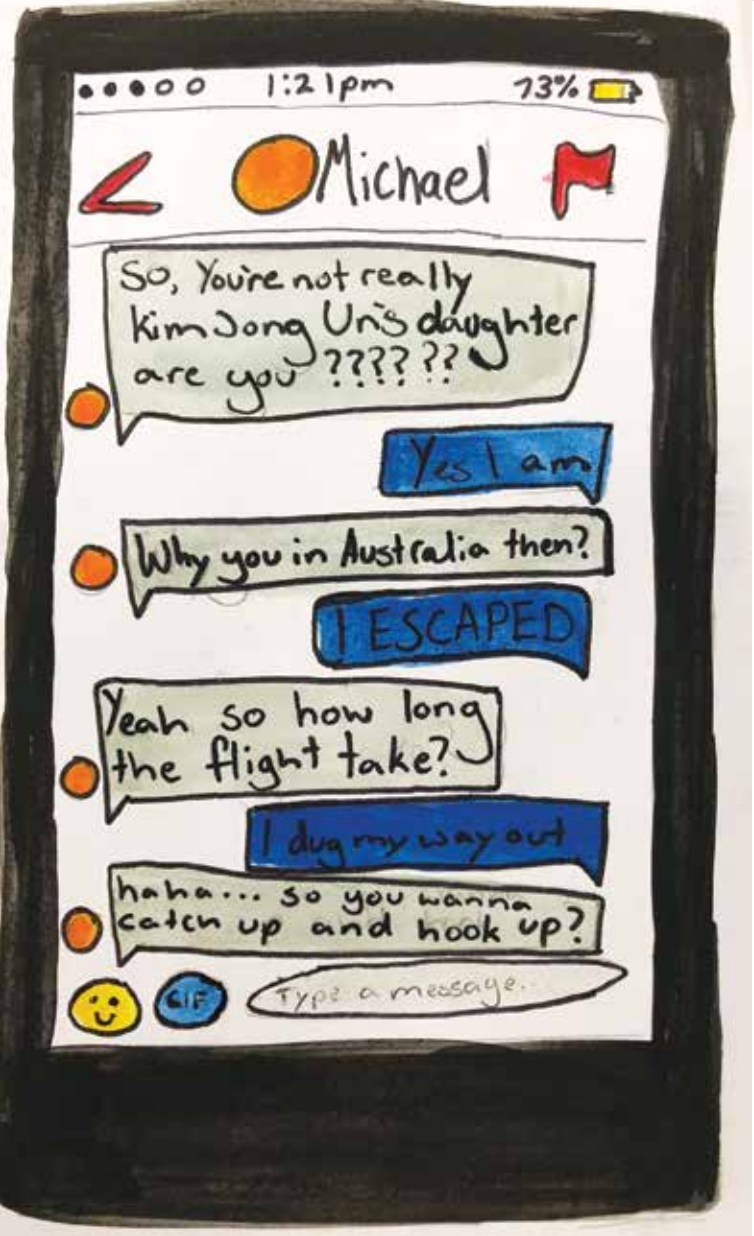 1:21pm 73%
Michael
So, You're not really
Kim Jong Un's daughter
are you ??????
Yes I am
Why you in Australia then?
I ESCAPED
Yeah so how long
the flight take?
I dug my way out
haha... so you wanna
catch up and hook up?
GIF Type a message..